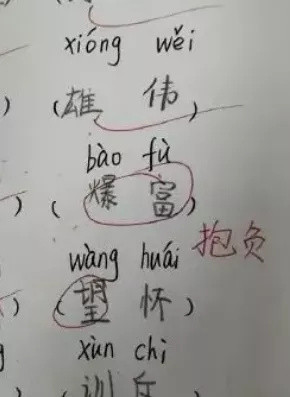 xióng wěi
) (雄 伟)
bào fù
) (爆 富)
抱负
wàng huái
) (望 怀)
xùn chì
(训 斥